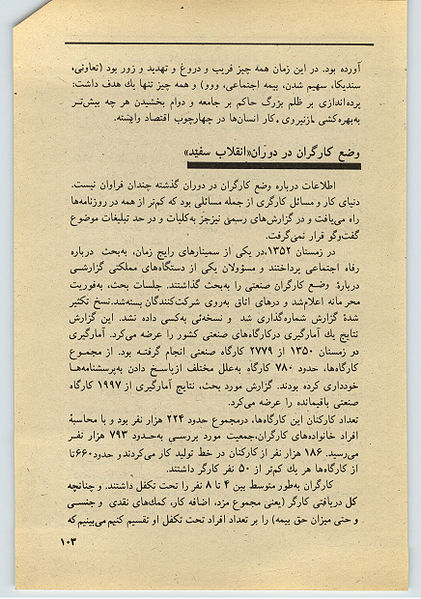 آورده بود. در این زمان همه چیز فریب و دروغ و تهدید و زور بود (تعاونی،
سندیکا، سهیم شدن، بیمه اجتماعی، ووو) و همه چیز تنها یك هدف داشت:
پرده‌اندازی بر ظلم بزرگ حاکم بر جامعه و دوام بخشیدن هر چه بیش‌تر
به‌بهره‌کشی ازنیروی کار انسان‌ها در چهارچوب اقتصاد وابسته.
وضع کارگران در دوران«انقلاب سفید»
اطلاعات درباره وضع کارگران در دوران گذشته چندان فراوان نیست.
دنیای کار و مسائل کارگری از جمله مسائلی بود که کم‌تر از همه در روزنامه‌ها
راه می‌یافت و در گزارش‌های رسمی نیزجز به‌کلیات و در حد تبلیغات موضوع
گفت‌وگو قرار نمی‌گرفت.
در زمستان ۱۳۵۲،در یکی از سمینارهای رایج زمان، به‌بحث درباره
رفاه اجتماعی پرداختند و مسؤولان یکی از دستگاه‌های مملکتی گزارشی
دربارهٔ وضع کارگران صنعتی را به‌بحث گذاشتند. جلسات بحث، به‌فوریت
محرمانه اعلام‌شد و درهای اتاق به‌روی شرکت‌کنندگان بسته‌شد.نسخ تکثیر
شدهٔ گزارش شماره‌گذاری شد و نسخه‌ئی به‌کسی داده نشد. این گزارش
نتایج یك آمارگیری درکارگاه‌های صنعتی کشور را عرضه می‌کرد. آمارگیری
در زمستان ۱۳۵۰ از ۲۷۷۹ کارگاه صنعتی انجام گرفته بود. از مجموع
کارگاه‌ها، حدود ۷۸۰ کارگاه به‌علل مختلف ازپاسخ دادن به‌پرسشنامه‌ها
خودداری کرده بودند. گزارش مورد بحث، نتایج آمارگیری از ۱۹۹۷ کارگاه
صنعتی باقیمانده را عرضه می‌کرد.
تعداد کارکنان این کارگاه‌ها، درمجموع حدود ۲۲۴ هزار نفر بود و با محاسبهٔ
افراد خانواده‌های کارگران،جمعیت مورد بررسی به‌حدود ۷۹۳ هزار نفر
می‌رسید. ۱۸۶ هزار نفر از کارکنان در خط تولید کار می‌کردند و حدود ۶۶۰ تا
از کارگاه‌ها هر یك کم‌تر از ۵۰ نفر کارگر داشتند.
کارگران به‌طور متوسط بین ۴ تا ۸ نفر را تحت تکفل داشتند. و چنانچه
کل دریافتی کارگر (یعنی مجموع مزد، اضافه کار، کمك‌های نقدی و جنسی
و حتی میزان حق بیمه) را بر تعداد افراد تحت تکفل او تقسیم کنیم می‌بینیم که
۱۰۳